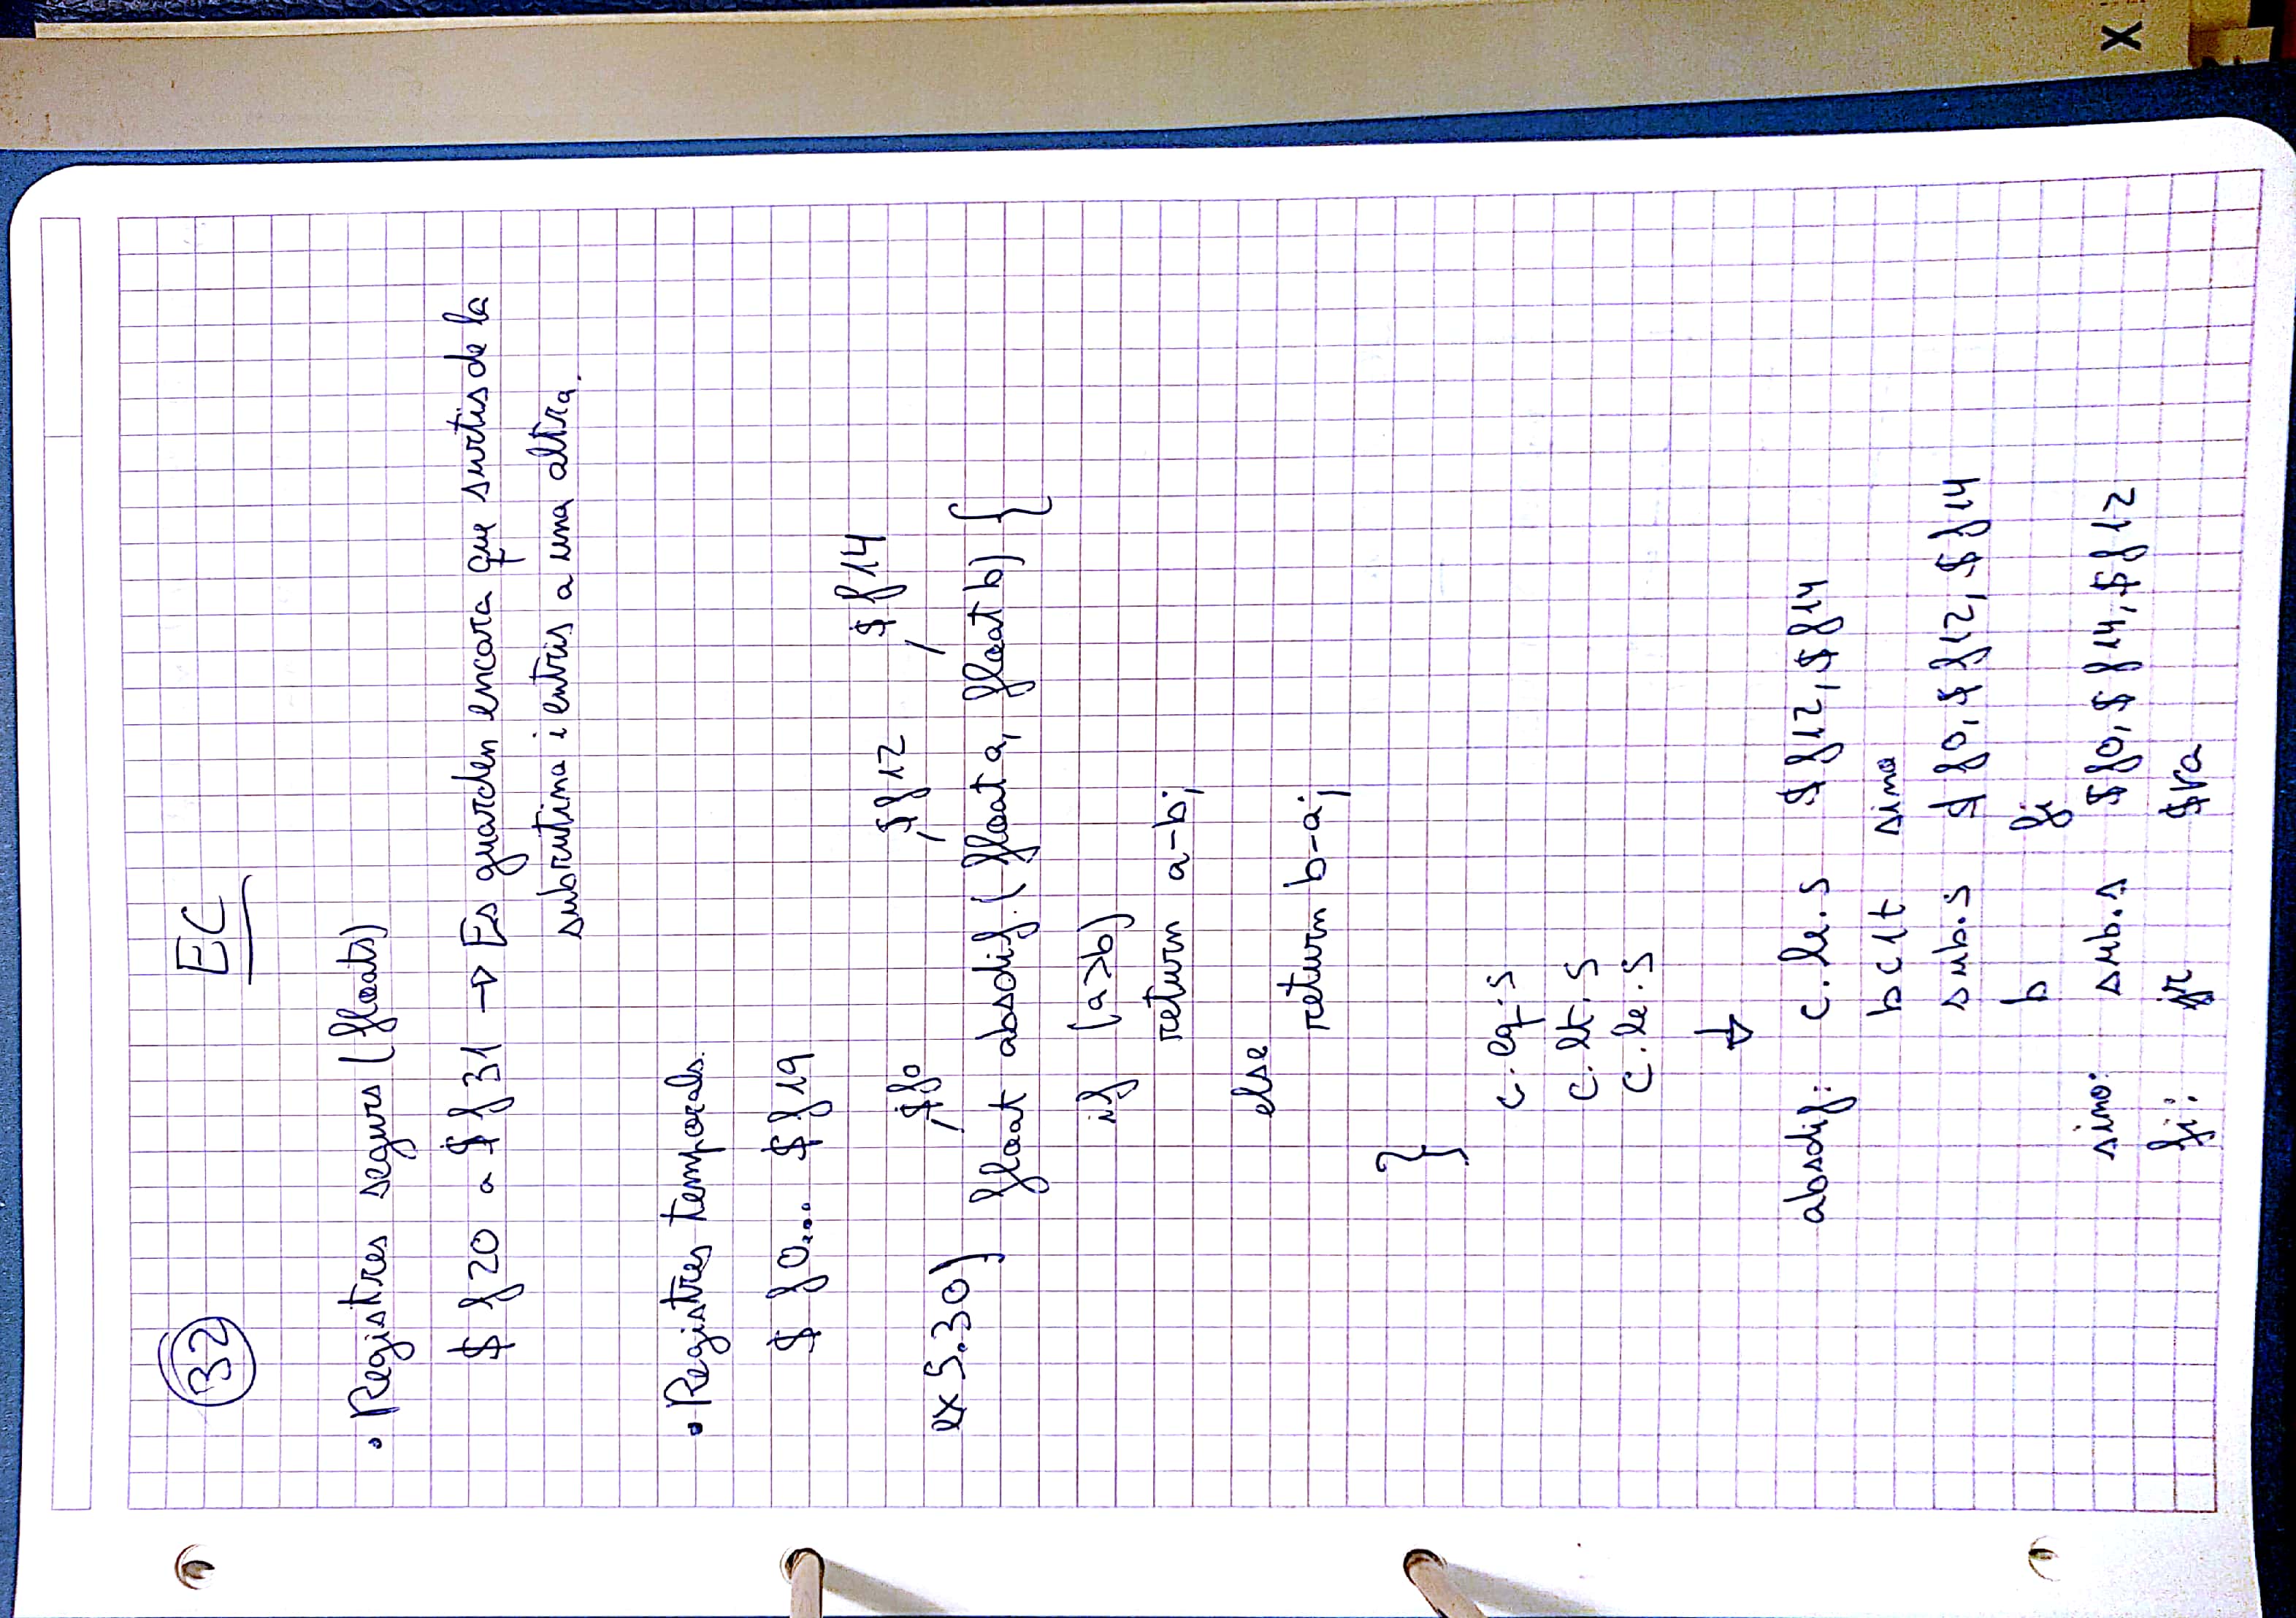 32
EC
• Registres segurs (floats)
$f20 a $f31 → Es guarden encara que surtis de la
subrutina i entris a una altra.
• Registres temporals.
$f0... $f19
$f0 $f12 $f14
ex 5.30)
float absdif (float a, float b) {
if (a>b)
return a-b;
else
return b-a;
}
c.eq.s
c.lt.s
c.le.s
↓
absdif: c.le.s $f12, $f14
bc1t sino
sub.s $f0, $f12, $f14
b fi
sino: sub.s $f0, $f14, $f12
fi: jr $ra
X